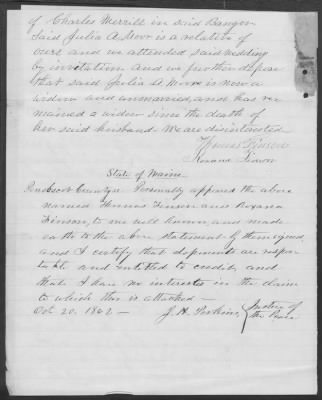 of Charles Merrill in said Bangor
Said Julia A. is a relative of
ours and we attended said wedding
by invitation and we further depose
that said Julia A. is now a
widow and unmarried, and has re
mained a widow since the death of
her said husband. We are disinterested
Thomas
State of Maine
Penobscot County ss. Personally appeared the above
named Thomas and Roxana
to me well known, and made
oath to the above statement by them signed
and I certify that deponents are respec
table and entitled to credit, and
that I have no interest in the claim
to which this is attached —
Oct 20. 1862 — J. H. Perkins { Justice of
the Peace